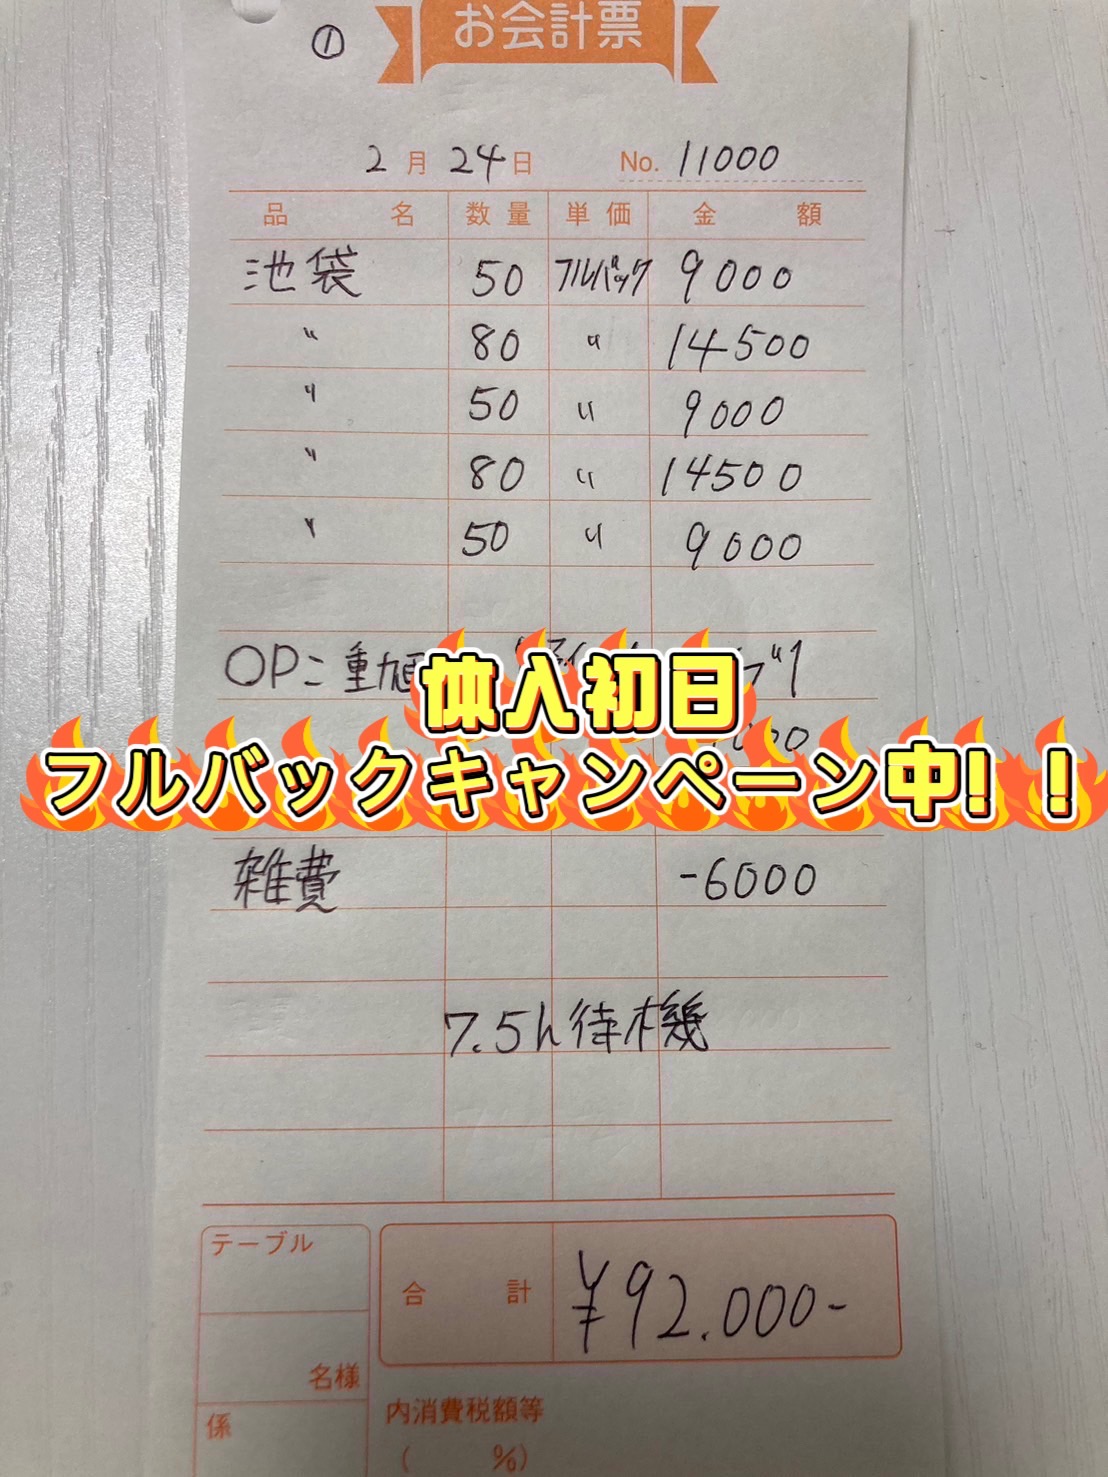 ①
お会計票
2月24日 No. 11000
品名 数量 単価 金額
池袋 50 フルバック 9000
〃 80 〃 14500
〃 50 〃 9000
〃 80 〃 14500
〃 50 〃 9000
OP=
体入初日
フルバックキャンペーン中!!
雑費 -6000
7.5h待機
テーブル
合計 ¥92.000-
名様
係
内消費税額等
( %)